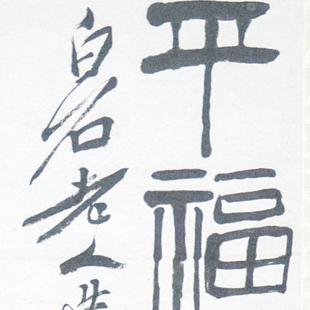 平福
白石老人